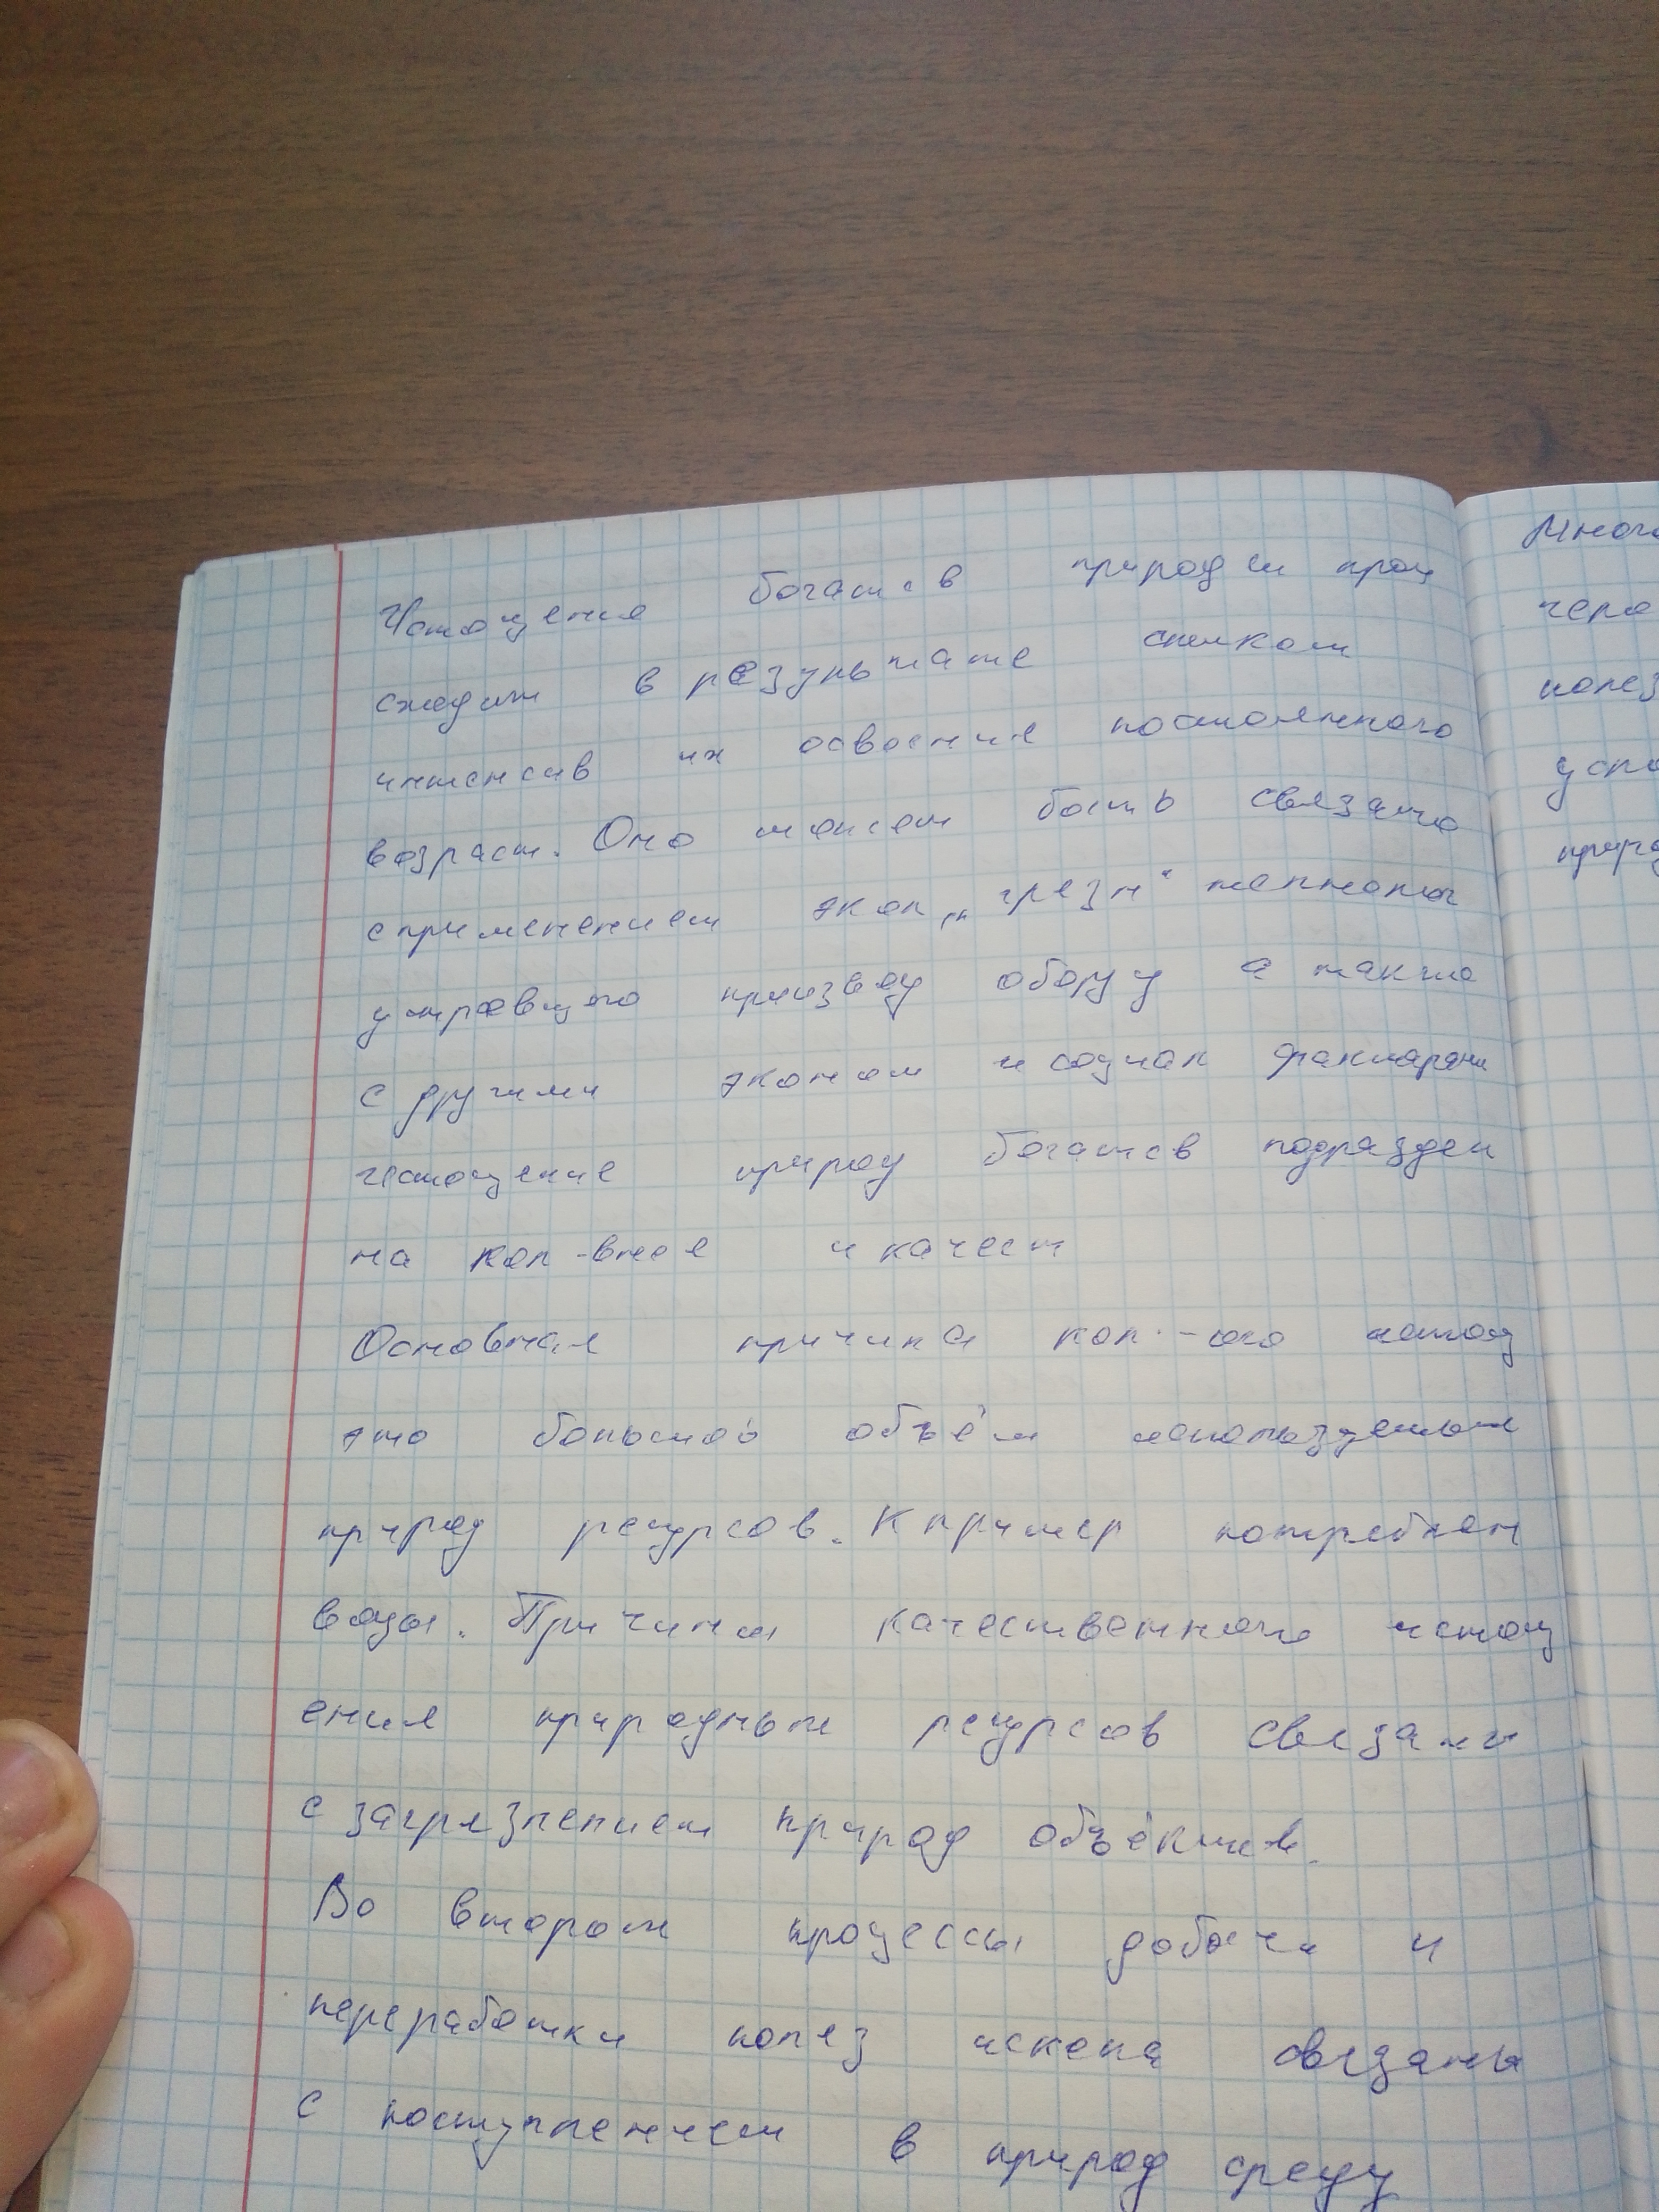 Истощения богатств природы прои
сходит в результате слишком
интенсив их освоение постоянного
возраст. Оно может быть связано
с применением экол „грязн“ технолог
устаревшего производ обору а также
с другими эконом и социал факторами
истощение природ богатств подраздел
на кол-вное и качест
Основная причина кол-ого истощ
это большой объём используемых
природ ресурсов. К пример потреблен
воды. Причины качественного истощ
ения природных ресурсов связаны
с загрязнением природ объектов.
Во втором процессы добычи и
переработки полез ископа связаны
с поступлением в природ среду
Много
чере
полез
усло
природ